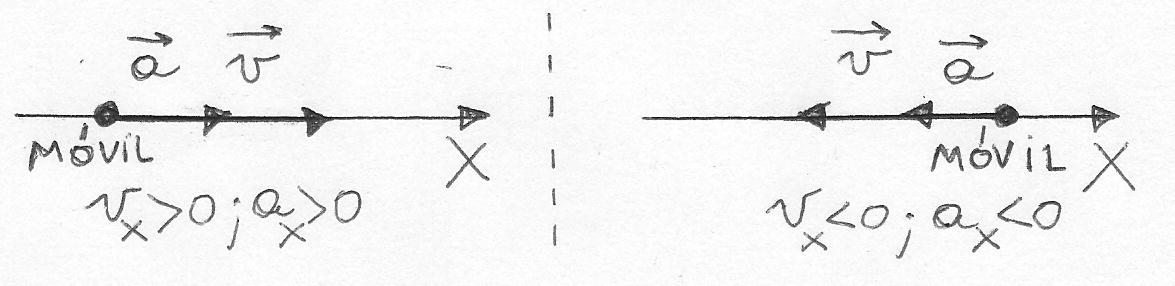 a⃗ v⃗
MÓVIL X
vₓ>0; aₓ>0
v⃗ a⃗
MÓVIL X
vₓ<0; aₓ<0